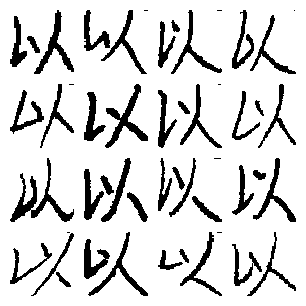 以以以以
以以以以
以以以以
以以以以